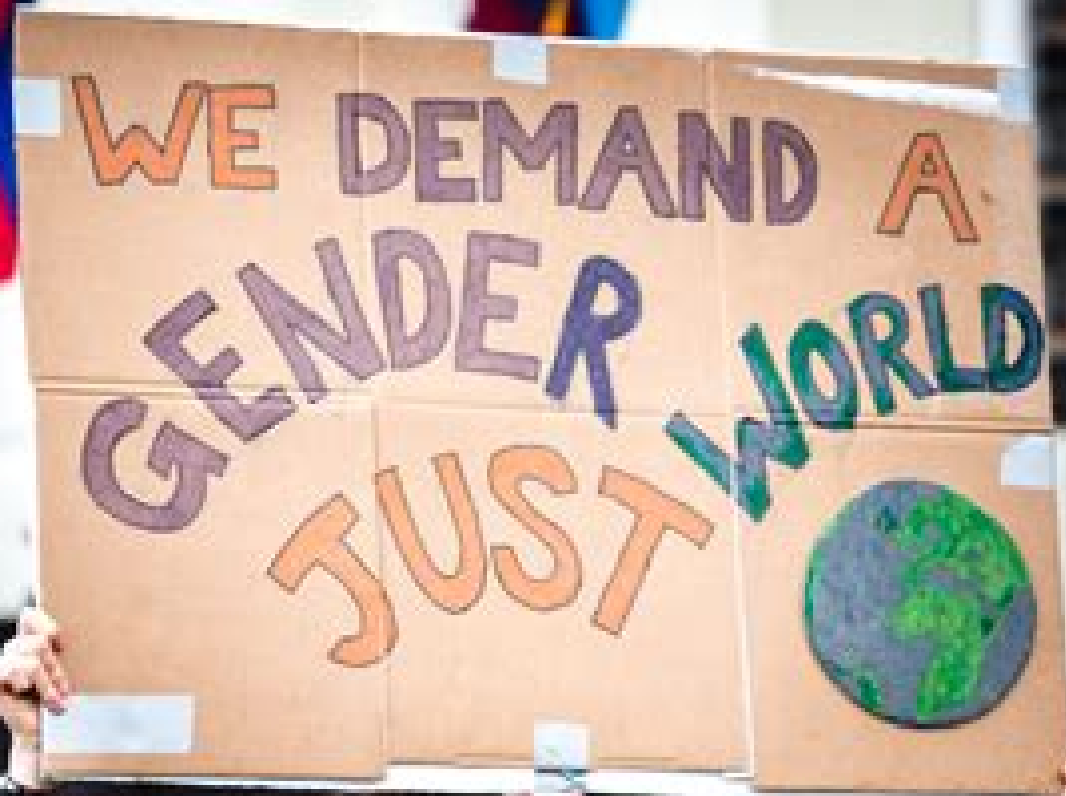 WE DEMAND A
GENDER
JUST
WORLD